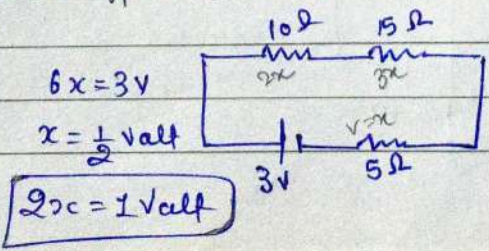 10Ω 15Ω
2x 3x
6x = 3V
x = 1/2 Valt
V=x
3V 5Ω
2x = 1 Valt